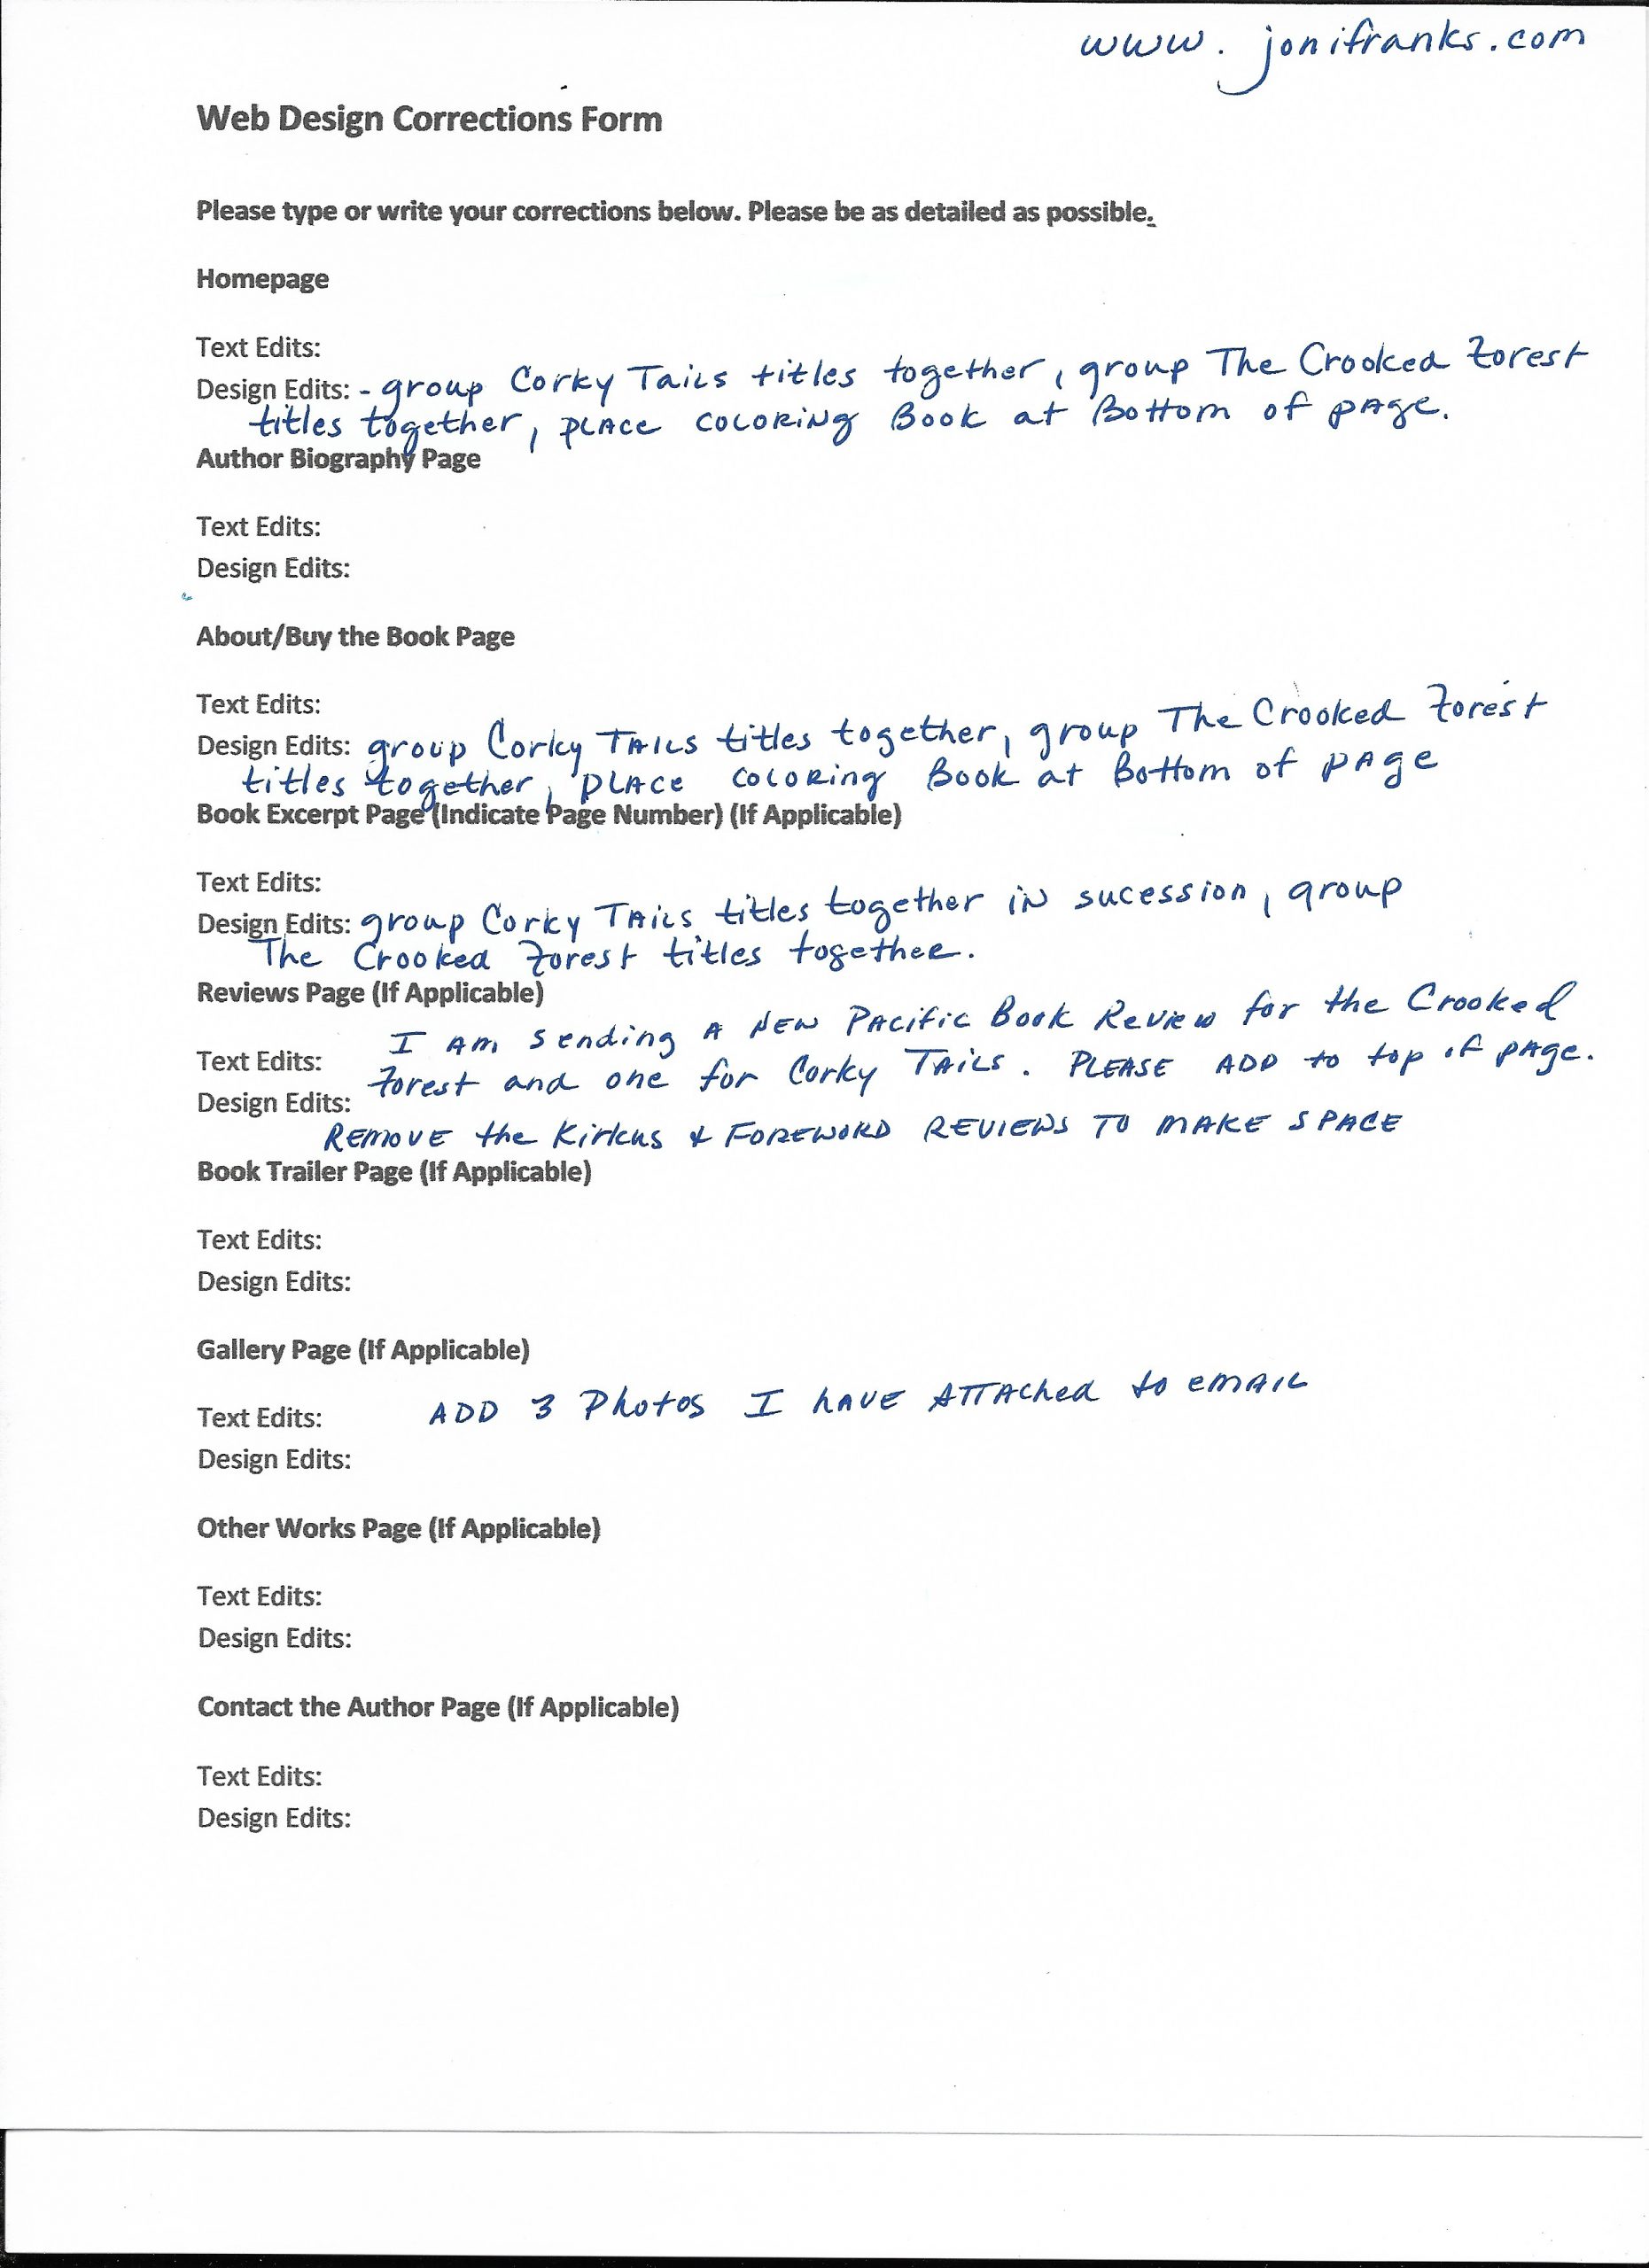 www.jonifranks.com
Web Design Corrections Form
Please type or write your corrections below. Please be as detailed as possible.
Homepage
Text Edits:
Design Edits: - group Corky Tails titles together, group The Crooked Forest
titles together, PLACE COLORING Book at Bottom of pAge.
Author Biography Page
Text Edits:
Design Edits:
About/Buy the Book Page
Text Edits:
Design Edits: group Corky TAILS titles together, group The Crooked Forest
titles together, PLACE COLORING Book at Bottom of pAge
Book Excerpt Page (Indicate Page Number) (If Applicable)
Text Edits:
Design Edits: group Corky TAILS titles together in sucession, group
The Crooked Forest titles together.
Reviews Page (If Applicable)
I AM sending A NEW PAcific Book Review for the Crooked
Text Edits: Forest and one for Corky TAILS. PLEASE ADD to top of pAge.
Design Edits:
REMOVE the Kirkus & FOREWORD REVIEWS TO MAKE SPACE
Book Trailer Page (If Applicable)
Text Edits:
Design Edits:
Gallery Page (If Applicable)
Text Edits: ADD 3 Photos I hAVE ATTAched to EMAIL
Design Edits:
Other Works Page (If Applicable)
Text Edits:
Design Edits:
Contact the Author Page (If Applicable)
Text Edits:
Design Edits: